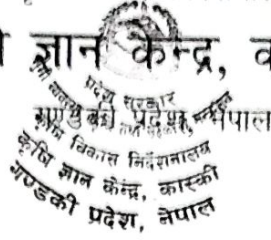 ज्ञान केन्द्र,
प्रदेश सरकार
गण्डकी प्रदेश, नेपाल
कृषि विकास निर्देशनालय
कृषि ज्ञान केन्द्र, कास्की
गण्डकी प्रदेश, नेपाल